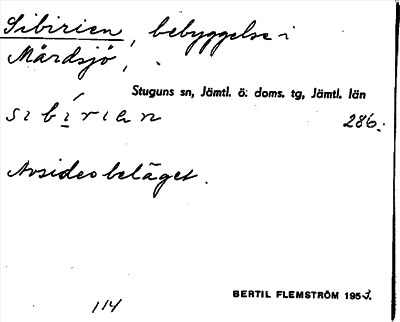 Sibirien, bebyggelse i
Mårdsjö,
Stuguns sn, Jämtl. ö: doms. tg, Jämtl. län
sibí̱rian 286.
Avsides beläget.
114
BERTIL FLEMSTRÖM 1953.